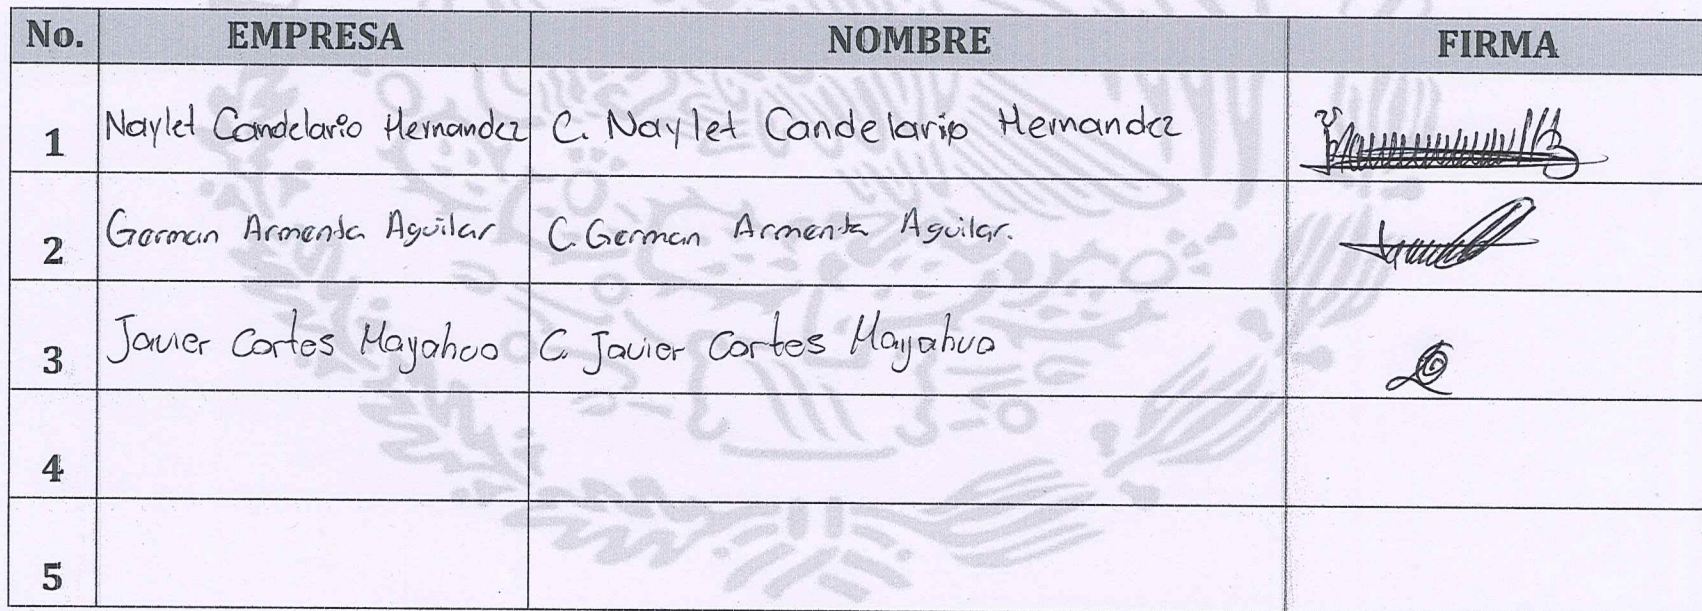 No. EMPRESA NOMBRE FIRMA
1 Naylet Candelario Hernandez C. Naylet Candelario Hernandez
2 German Armenta Aguilar C. German Armenta Aguilar.
3 Javier Cortes Mayahua C. Javier Cortes Mayahua
4
5